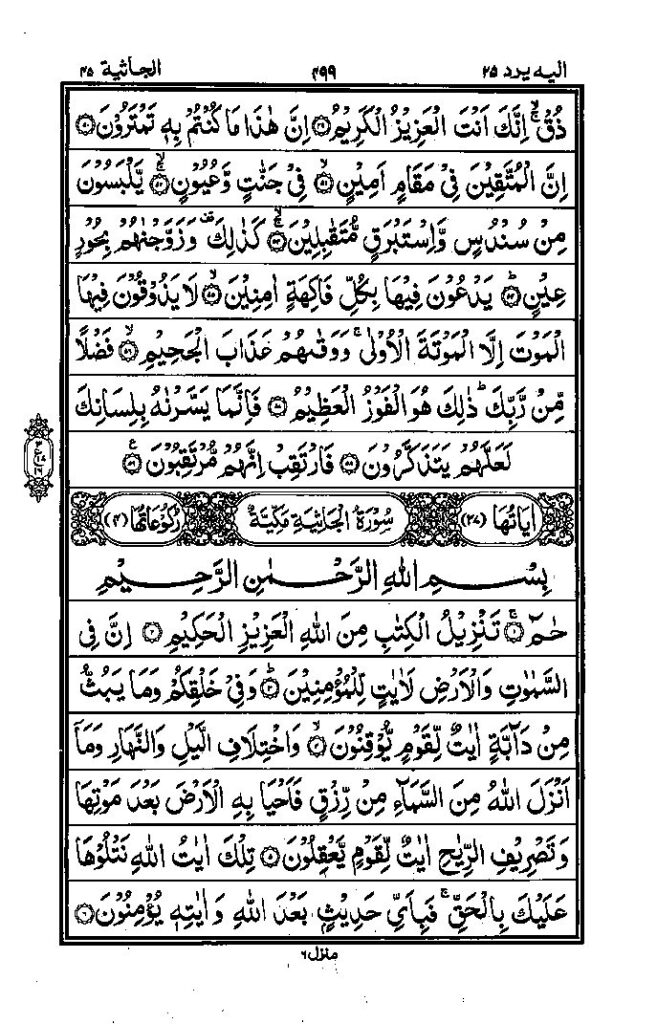 الیه یرد ۲۵ ۴۹۹ الجاثیة ۴۵
ذُقْ ۚۙ اِنَّكَ اَنْتَ الْعَزِیْزُ الْكَرِیْمُ ۝۴۹ اِنَّ هٰذَا مَا كُنْتُمْ بِهٖ تَمْتَرُوْنَ ۝۵۰
اِنَّ الْمُتَّقِیْنَ فِیْ مَقَامٍ اَمِیْنٍ ۝۵۱ۙ فِیْ جَنّٰتٍ وَّعُیُوْنٍ ۝۵۲ۚۙ یَّلْبَسُوْنَ
مِنْ سُنْدُسٍ وَّاِسْتَبْرَقٍ مُّتَقٰبِلِیْنَ ۝۵۳ۚۙ كَذٰلِكَ ۫ وَزَوَّجْنٰهُمْ بِحُوْرٍ
عِیْنٍ ۝۵۴ؕ یَدْعُوْنَ فِیْهَا بِكُلِّ فَاكِهَةٍ اٰمِنِیْنَ ۝۵۵ۙ لَا یَذُوْقُوْنَ فِیْهَا
الْمَوْتَ اِلَّا الْمَوْتَةَ الْاُوْلٰی ۚ وَوَقٰىهُمْ عَذَابَ الْجَحِیْمِ ۝۵۶ۙ فَضْلًا
مِّنْ رَّبِّكَ ؕ ذٰلِكَ هُوَ الْفَوْزُ الْعَظِیْمُ ۝۵۷ فَاِنَّمَا یَسَّرْنٰهُ بِلِسَانِكَ
لَعَلَّهُمْ یَتَذَكَّرُوْنَ ۝۵۸ فَارْتَقِبْ اِنَّهُمْ مُّرْتَقِبُوْنَ ۝۵۹ۧ
اٰیَاتُهَا (۳۷) سُوْرَةُ الْجَاثِیَةِ مَكِّیَّةٌ رُكُوْعَاتُهَا (۴)
بِسْمِ اللهِ الرَّحْمٰنِ الرَّحِیْمِ
حٰمٓ ۝۱ۚ تَنْزِیْلُ الْكِتٰبِ مِنَ اللهِ الْعَزِیْزِ الْحَكِیْمِ ۝۲ اِنَّ فِی
السَّمٰوٰتِ وَالْاَرْضِ لَاٰیٰتٍ لِّلْمُؤْمِنِیْنَ ۝۳ؕ وَفِیْ خَلْقِكُمْ وَمَا یَبُثُّ
مِنْ دَآبَّةٍ اٰیٰتٌ لِّقَوْمٍ یُّوْقِنُوْنَ ۝۴ۙ وَاخْتِلَافِ الَّیْلِ وَالنَّهَارِ وَمَاۤ
اَنْزَلَ اللهُ مِنَ السَّمَآءِ مِنْ رِّزْقٍ فَاَحْیَا بِهِ الْاَرْضَ بَعْدَ مَوْتِهَا
وَتَصْرِیْفِ الرِّیٰحِ اٰیٰتٌ لِّقَوْمٍ یَّعْقِلُوْنَ ۝۵ تِلْكَ اٰیٰتُ اللهِ نَتْلُوْهَا
عَلَیْكَ بِالْحَقِّ ۚ فَبِاَیِّ حَدِیْثٍۭ بَعْدَ اللهِ وَاٰیٰتِهٖ یُؤْمِنُوْنَ ۝۶
منزل ۶